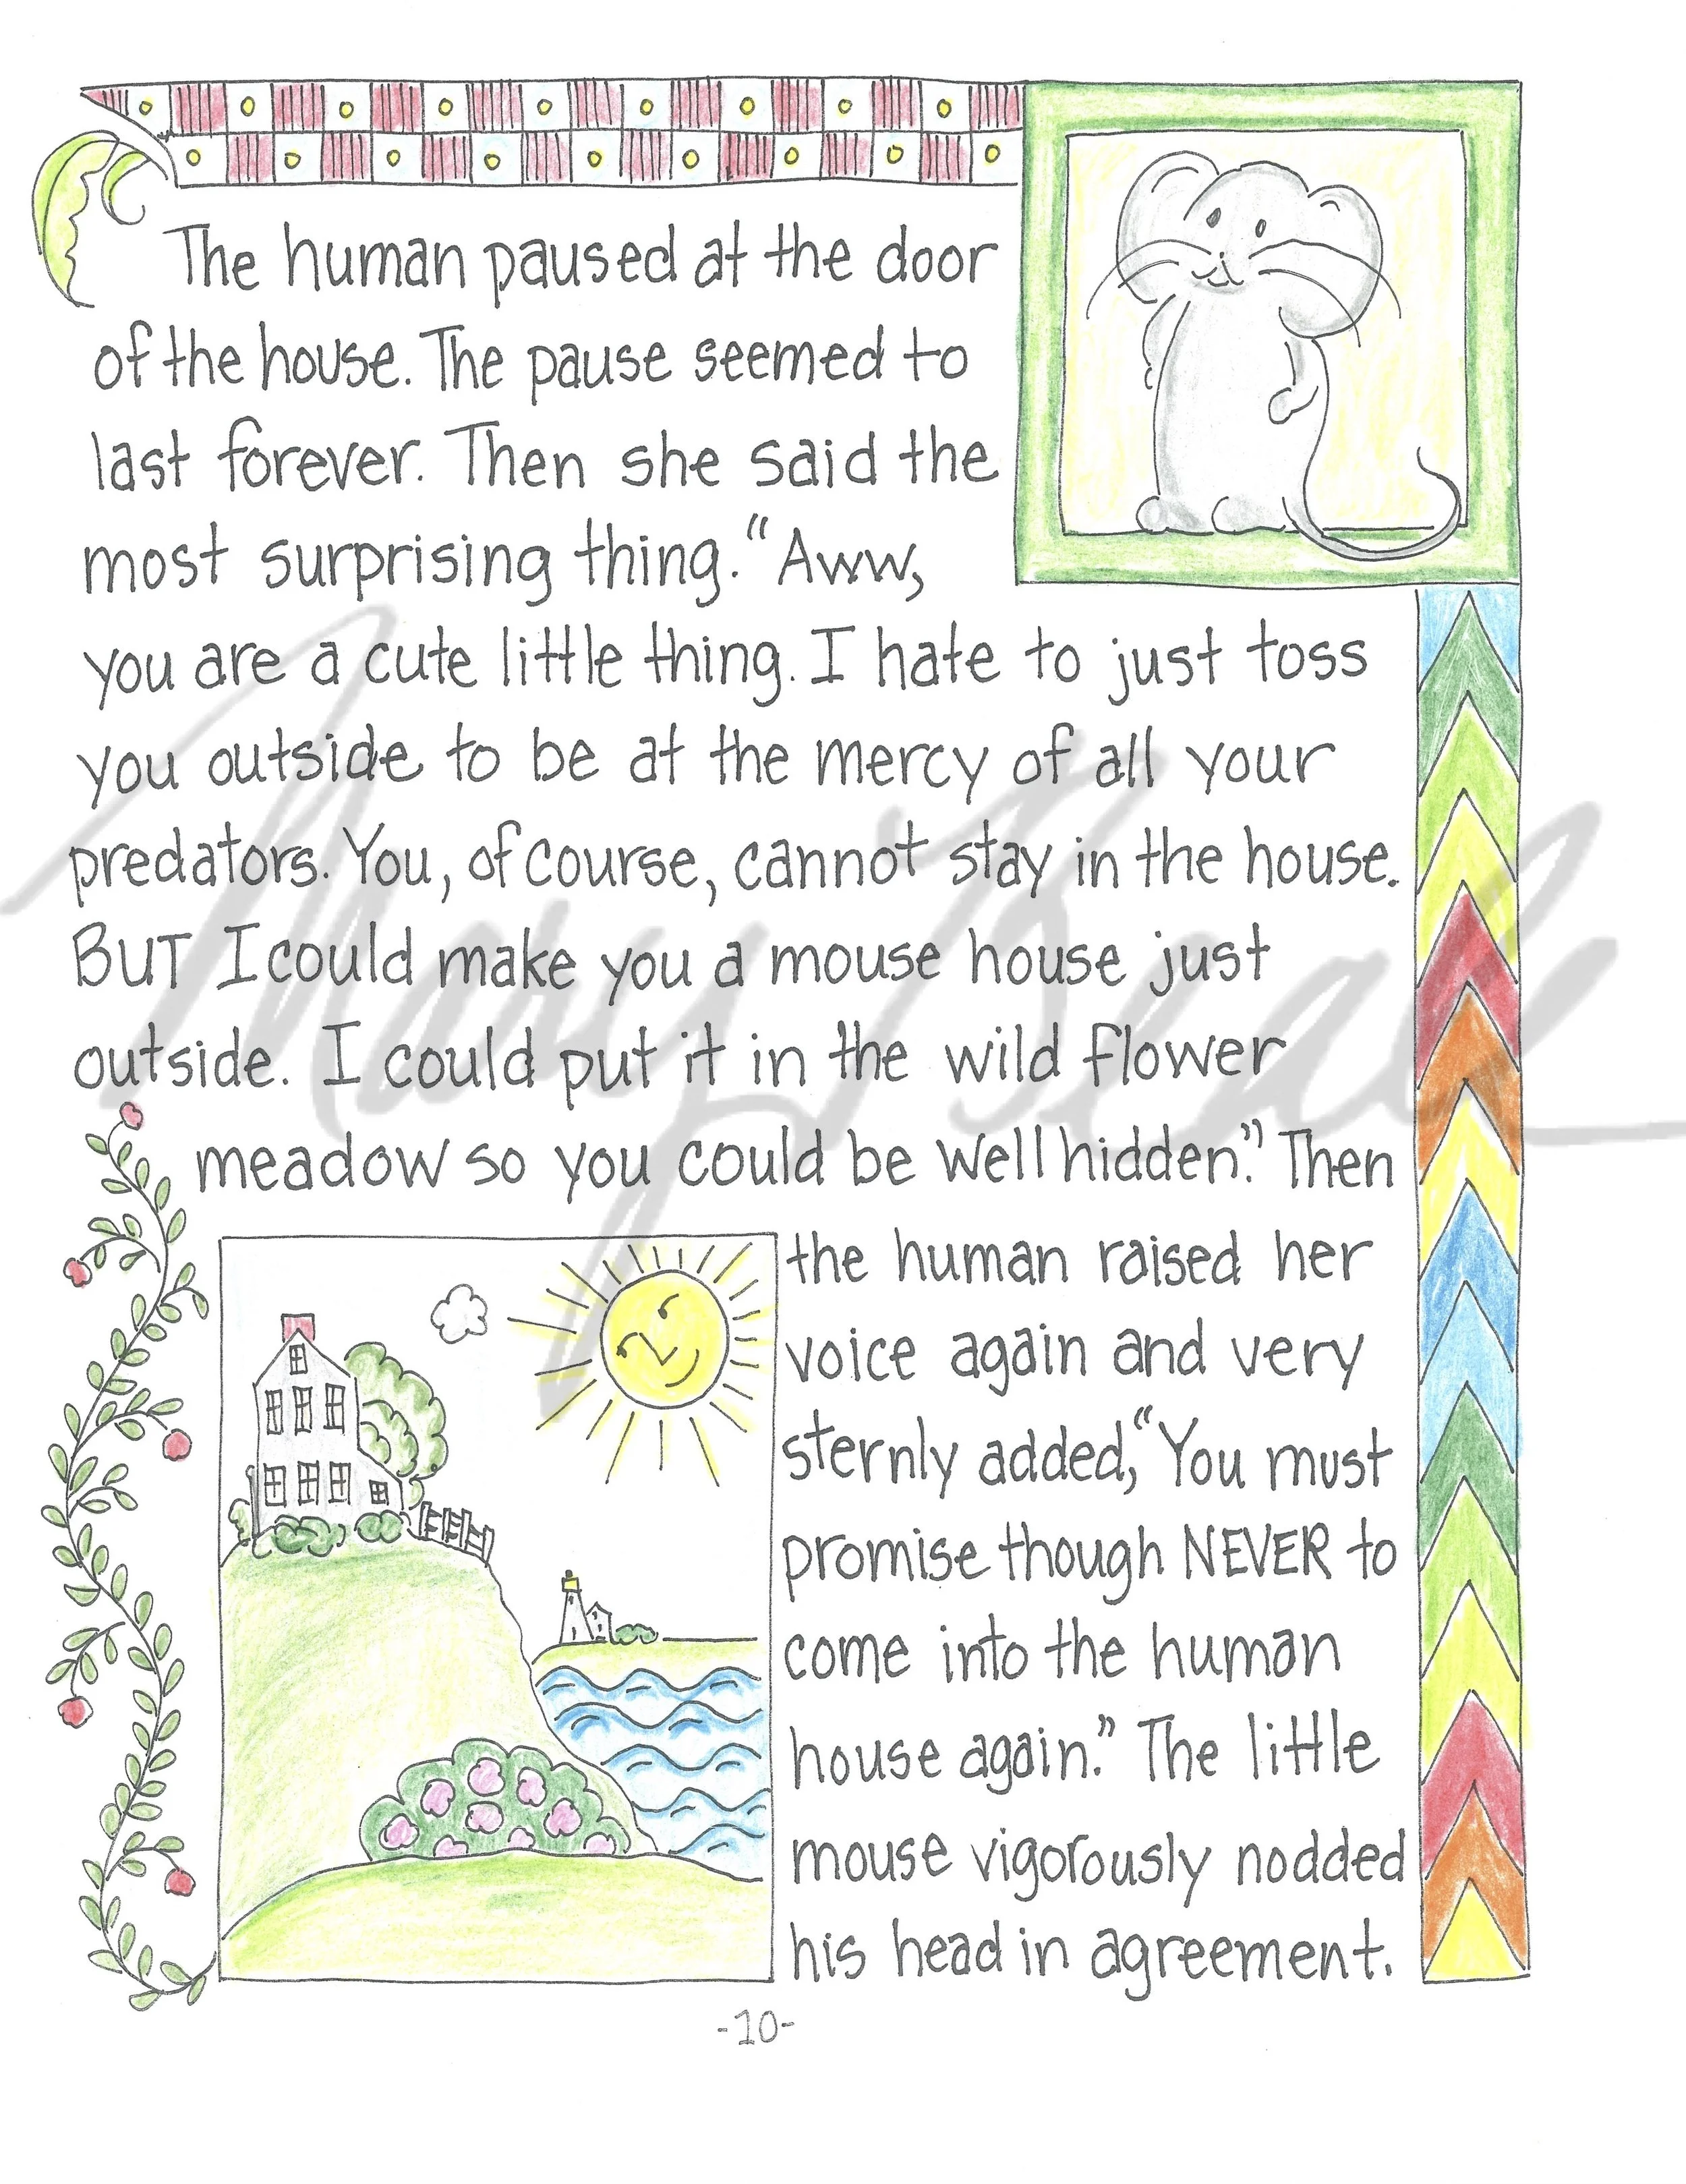 The human paused at the door
of the house. The pause seemed to
last forever. Then she said the
most surprising thing. “Aww,
you are a cute little thing. I hate to just toss
you outside to be at the mercy of all your
predators. You, of course, cannot stay in the house.
BUT I could make you a mouse house just
outside. I could put it in the wild flower
meadow so you could be well hidden.” Then
the human raised her
voice again and very
sternly added, “You must
promise though NEVER to
come into the human
house again.” The little
mouse vigorously nodded
his head in agreement.
-10-
Mary Beale